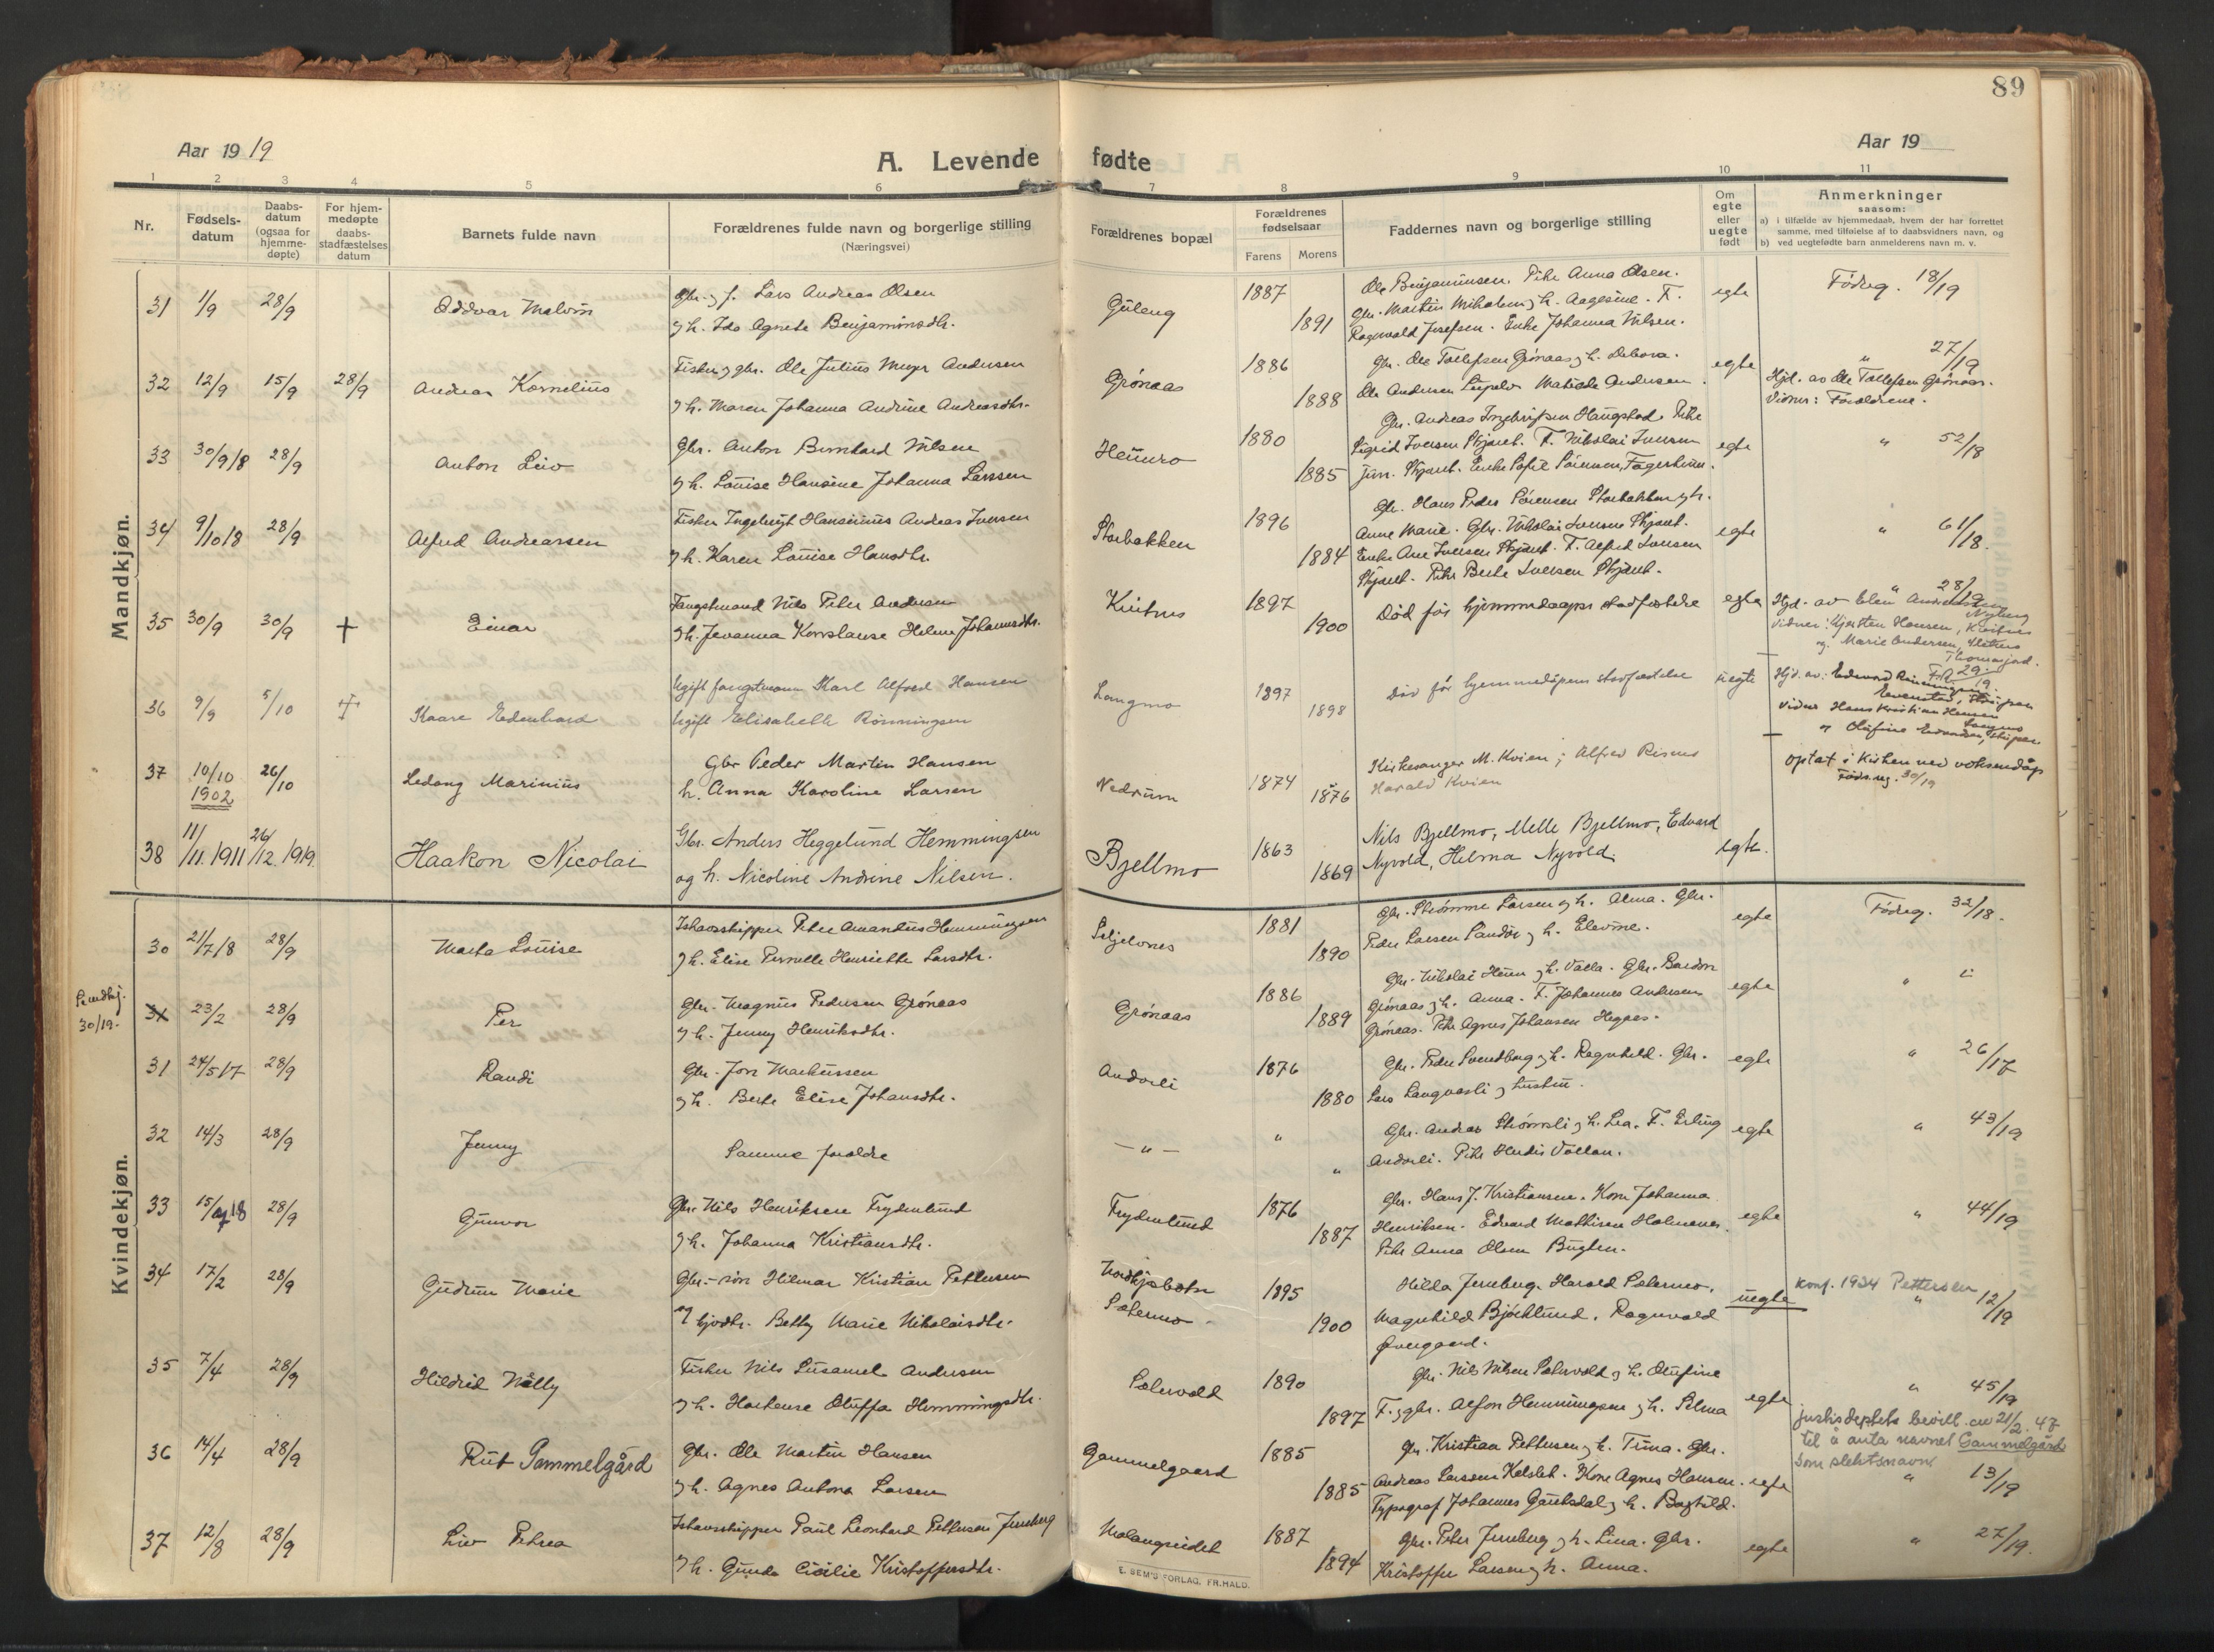 89
Aar 1919
A. Levende fødte
Aar 19
1 2 3 4 5 6 7 8 9 10 11
Nr.
Fødsels-
datum
Daabs-
datum
(ogsaa for
hjemme-
døpte)
For hjem-
medøpte
daabs-
stadfæstelses
datum
Barnets fulde navn
Forældrenes fulde navn og borgerlige stilling
(Næringsvei)
Forældrenes bopæl
Forældrenes
fødselsaar
Farens Morens
Faddernes navn og borgerlige stilling
Om
egte
eller
uegte
født
Anmerkninger
saasom:
a) i tilfælde av hjemmedaab, hvem der har forrettet
samme, med tilføielse af to daabsvidners navn, og
b) ved uegtefødte barn anmelderens navn m. v.
Mandkjøn.
31 1/9 28/9 Oddvar Malvin
Gbr. og f. Lars Andreas Olsen
og h. Ida Agnete Benjaminsdtr.
Guleng 1887 1891
Ole Benjaminsen. Pike Anna Olsen.
Gbr. Martin Mikalsen og h. Aagesine. F.
Ragnvald Josefsen. Enke Johanna Nilsen.
egte Fødreg. 18/19
32 12/9 15/9 28/9 Andreas Kornelius
Fisker og gbr. Ole Julius Meyer Andersen
og h. Maren Johanna Andrine Andreasdtr.
Grønaas 1886 1888
Gbr. Ole Tollefsen Grønaas og h. Debora.
Ole Andersen Matilde Andersen.
egte " 27/19
Hjd. av Ole Tollefsen Grønaas.
Vidner: Forældrene.
33 30/9 18 28/9 Anton Leiv
Gbr. Anton Bernhard Nilsen
og h. Louise Hansine Johanna Larssen
Heimro 1880 1885
Gbr. Andreas Ingebrigtsen Haugstad. Pike
Sigrid Iversen Skjæret. F. Nikolai Iversen
jun. Skjæret. Enke Sofie Sørensen, Fagerheim.
egte " 52/18
34 9/10 18 28/9 Alfred Andreassen
Fisker Ingebrigt Hansinius Andreas Iversen
og h. Karen Louise Hansdtr.
Storbakken 1896 1884
Gbr. Hans Peder Sørensen Storbakken og h.
Anne Marie. Gbr. Nikolai Iversen Skjæret.
Enke Ane Iversen Skjæret. F. Alfred Iversen
Skjæret. Pike Berte Iversen Skjæret.
egte " 61/18.
35 30/9 30/9 + Einar
Fangstmand Nils Peter Andersen
og h. Jovanna Konstanse Helene Johansdtr.
1897 1900
Død før hjemmedaaps stadfæstelse
egte " 28/19
Hjd. av Elen Andersen,
Nyberg
Vidner: Kjersten Hansen,
og Marie Andersen,
Thomasjord.
36 9/9 5/10 + Kaare Edenhard
Ugift fangstmann Karl Alfred Hansen
Ugift Elisabeth Rønningsen
Langmo 1897 1898
Død før hjemmedåpens stadfæstelse
uegte F.R. 29/19
Hjd. av: Edevard
Vidner Hans Kristian Hansen
Langmo
og Olufine
37 10/10 1902 26/10 Ledang Marinius
Gbr Peder Martin Hansen
h. Anna Karoline Larsen
Nedrum 1874 1876
Kirkesanger M. Kvien; Alfred Rismo
Harald Kvien
optat i Kirken ved voksendåp
Føds.reg. 30/19
38 11/11. 1911 26/12. 1919. Haakon Nicolai
Gbr. Anders Heggelund Hemmingsen
og h. Nicoline Andrine Nilsen.
Bjellmo 1863 1869
Nils Bjellmo, Melle Bjellmo, Edvard
Nyvold, Helma Nyvold.
egte.
Kvindekjøn.
30 21/7 18 28/9 Marta Louise
Ishavsskipper Peter Amandus Hemmingsen
og h. Elise Pernelle Henriette Larsdtr.
Seljelvnes 1881 1890
Gbr. Strømme Larsen og h. Alma. Gbr.
Peder Larsen Sandør og h. Elevine.
egte Fødreg. 32/18.
Se mandkj.
30/19.
31 23/2 28/9 Per
Gbr. Magnus Pedersen Grønaas
og h. Jenny Henriksdtr.
Grønaas 1886 1889
Gbr. Nikolai Heim og h. Valla. Gbr. Bardon
Grønaas og h. Anna. F. Johannes Andersen
Grønaas. Pike Agnes Johansen Hegnes.
egte "
31 24/5 17 28/9 Randi
Gbr. Jon Markussen
og h. Berte Elise Johansdtr.
Andorli 1876 1880
Gbr. Peder Svendborg og h. Ragnhild. Gbr.
Lars Langvasli og hustru.
egte " 26/17
32 14/3 28/9 Jenny
Samme forældre
— " — " "
Gbr. Andreas Strømsli og h. Lea. F. Erling
Andorli. Pike Herdis Vollan.
egte " 43/19
33 15/9 18 28/9 Gunvor
Gbr. Nils Henriksen Frydenlund
og h. Johanna Kristiansdtr.
Frydenlund 1876 1887
Gbr. Hans J. Kristiansen. Kone Johanna
Henriksen. Edvard Mathisen Holmenes.
Pike Anna Olsen Buglen.
egte " 44/19
34 17/2 28/9 Gudrun Marie
Gbr.-søn Hilmar Kristian Pettersen
og tjodtr. Betty Marie Nikolaisdtr.
Nordkjosbotn
Solermo 1895 1900
Hilda Jernberg. Harald Solermo.
Magnhild Bjørklund. Ragnvald
Øvergaard.
uegte Konf. 1934 Pettersen
" 12/19
35 7/4 28/9 Hildrid Nelly
Fisker Nils Lusamel Andersen
og h. Hortense Oluffa Hemmingsdtr.
Solervold 1890 1897
Gbr. Nils Nilsen Solervold og h. Olufine
F. og gbr. Alfon Hemmingsen og h. Selma
egte " 45/19
36 14/4 28/9 Rut Gammelgård
Gbr. Ole Martin Hansen
og h. Agnes Antona Larsen
Gammelgaard 1885 1885
Gbr. Kristian Pettersen og h. Trina. Gbr.
Andreas Larssen Kalslet. Kone Agnes Hansen.
Typograf Johannes Gausdal og h. Boghild.
egte
justisdeptets bevill. av 21/2. 47
til å anta navnet Gammelgård
som slektsnavn.
" 13/19
37 12/8 28/9 Liv Petrea
Ishavsskipper Paul Leonhard Pettersen Jernberg
og h. Gunda Cicilie Kristoffersdtr.
Malangseidet 1887 1894
Gbr. Peter Jernberg og h. Lina. Gbr.
Kristoffer Larsen og h. Anna.
egte " 27/19.
E. SEM'S FORLAG, FR.HALD.